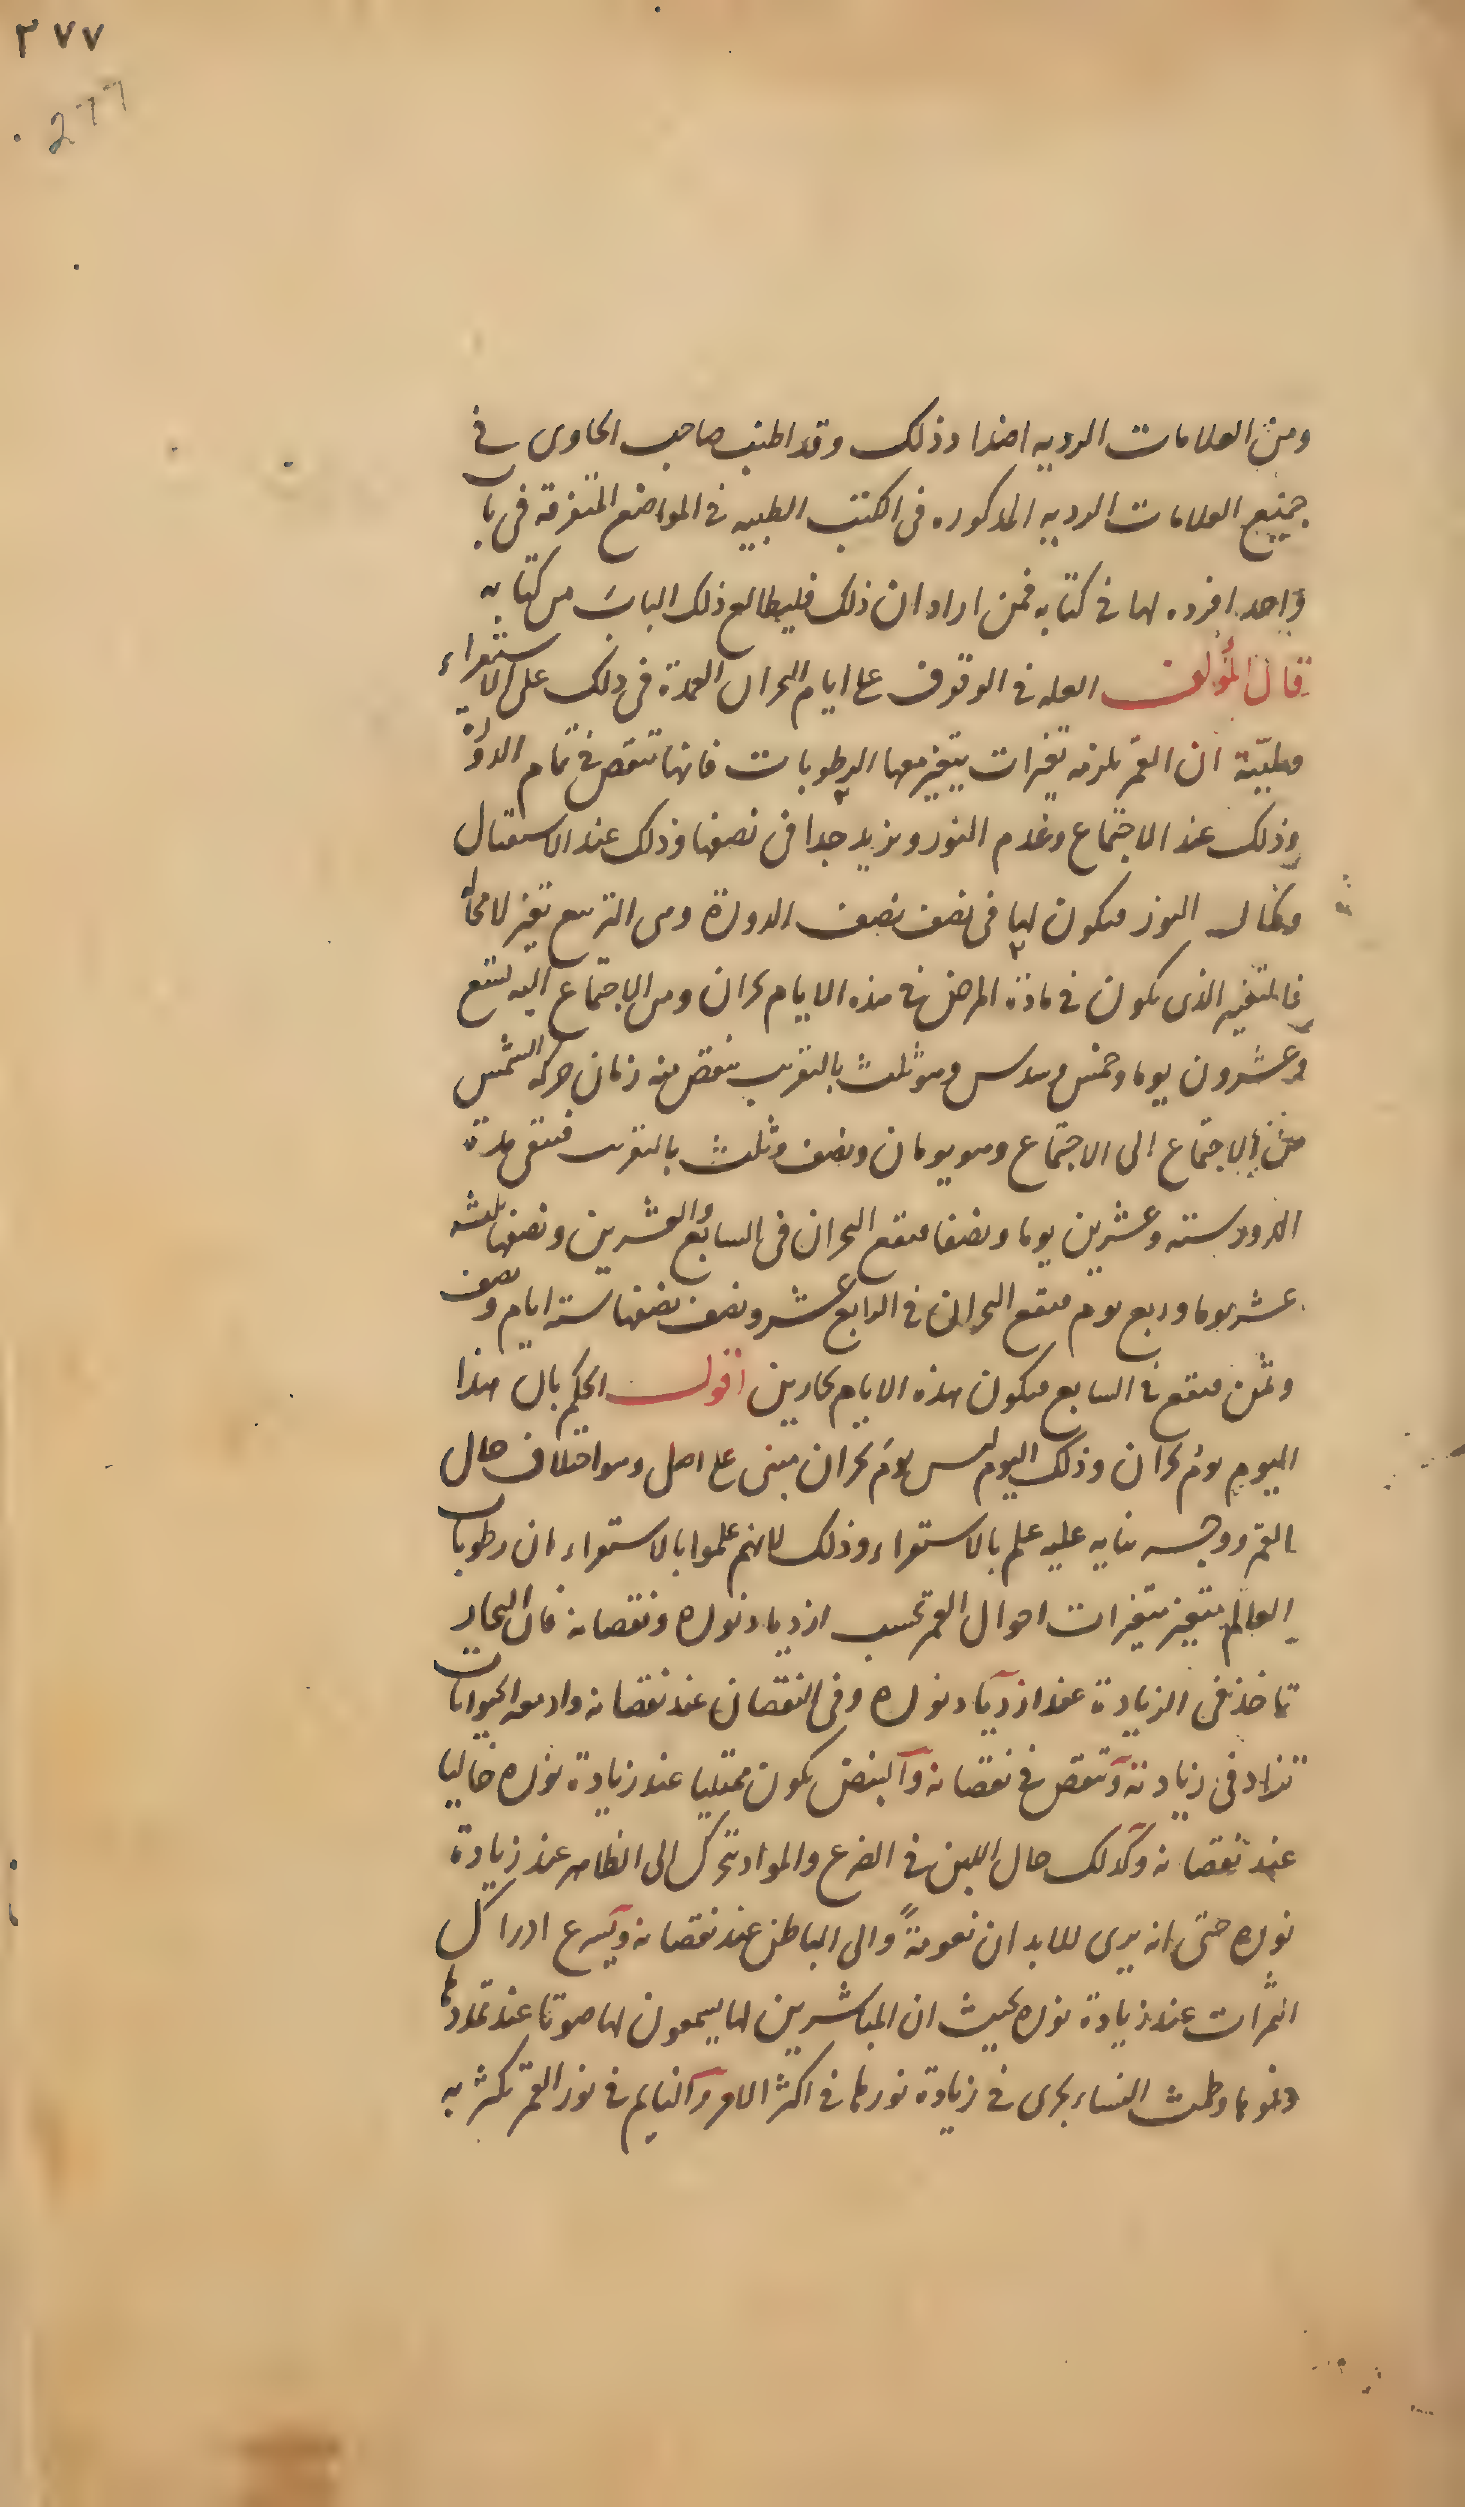 ٣٧٧
277
ومن العلامات الرديه اضداد ذلك وقد اطنب صاحب الحاوى فى
جميع العلامات الرديه المذكوره فى الكتب الطبيه فى المواضع المتفرقه فى باب
واحد افرده لها فى كتابه فمن اراد ان ذلك فليطالع ذلك الباب من كتابه
قال المؤلف العله فى الوقوف على ايام البحران العمدة فى ذلك على الاستقراء
ان القمر يلزمه تغيرات يتغير معها الرطوبات فانها تنقص فى تمام الدورة
وذلك عند الاجتماع وعدم النور ويزيد جدا فى نصفها وذلك عند الاستقبال
وكمال النور فيكون لها فى نصف نصف الدورة ومن التربيع تغير لا محالة
فالتغير الذى يكون فى مادة المرض فى هذه الايام بحران ومن الاجتماع اليه تسع
وعشرون يوما وخمس وسدس وهو ثلث بالتقريب ينقص منه زمان حركه الشمس
من الاجتماع الى الاجتماع وهو يومان ونصف وثلث بالتقريب فتبقى مدة
الدور سته وعشرين يوما ونصفا فيقع البحران فى السابع والعشرين ونصفها ثلثه
عشر يوما وربع يوم فيقع البحران فى الرابع عشر ونصف نصفها ستة ايام ونصف
وثمن فيقع فى السابع فيكون هذه الايام بحارين اقول الحكم بان هذا
اليوم يوم بحران وذلك اليوم ليس يوم بحران مبنى على اصل وهو اختلاف حال
القمر ووجه بنايه عليه علم بالاستقراء وذلك لانهم علموا بالاستقراء ان رطوبات
العالم يتغير بتغيرات احوال القمر بحسب ازدياد نوره ونقصانه فان البحار
تاخذ فى الزيادة عند ازدياد نوره وفى النقصان عند نقصانه وادمغه الحيوانات
تزاد فى زيادته وتنقص فى نقصانه والنبض يكون ممتليا عند زيادة نوره خاليا
عند نقصانه وكذلك حال اللبن فى الضرع والمواد تتحرك الى الظاهر عند زيادة
نوره حتى انه يرى للابدان نعومةً والى الباطن عند نقصانه ويسرع ادراك
الثمرات عند زيادة نوره بحيث ان المباشرين لها يسمعون لها صوتا عند تمددها
ونموها وطمث النساء يجرى فى زيادة نورها فى اكثر الامر والنايم فى نور القمر تكثر به